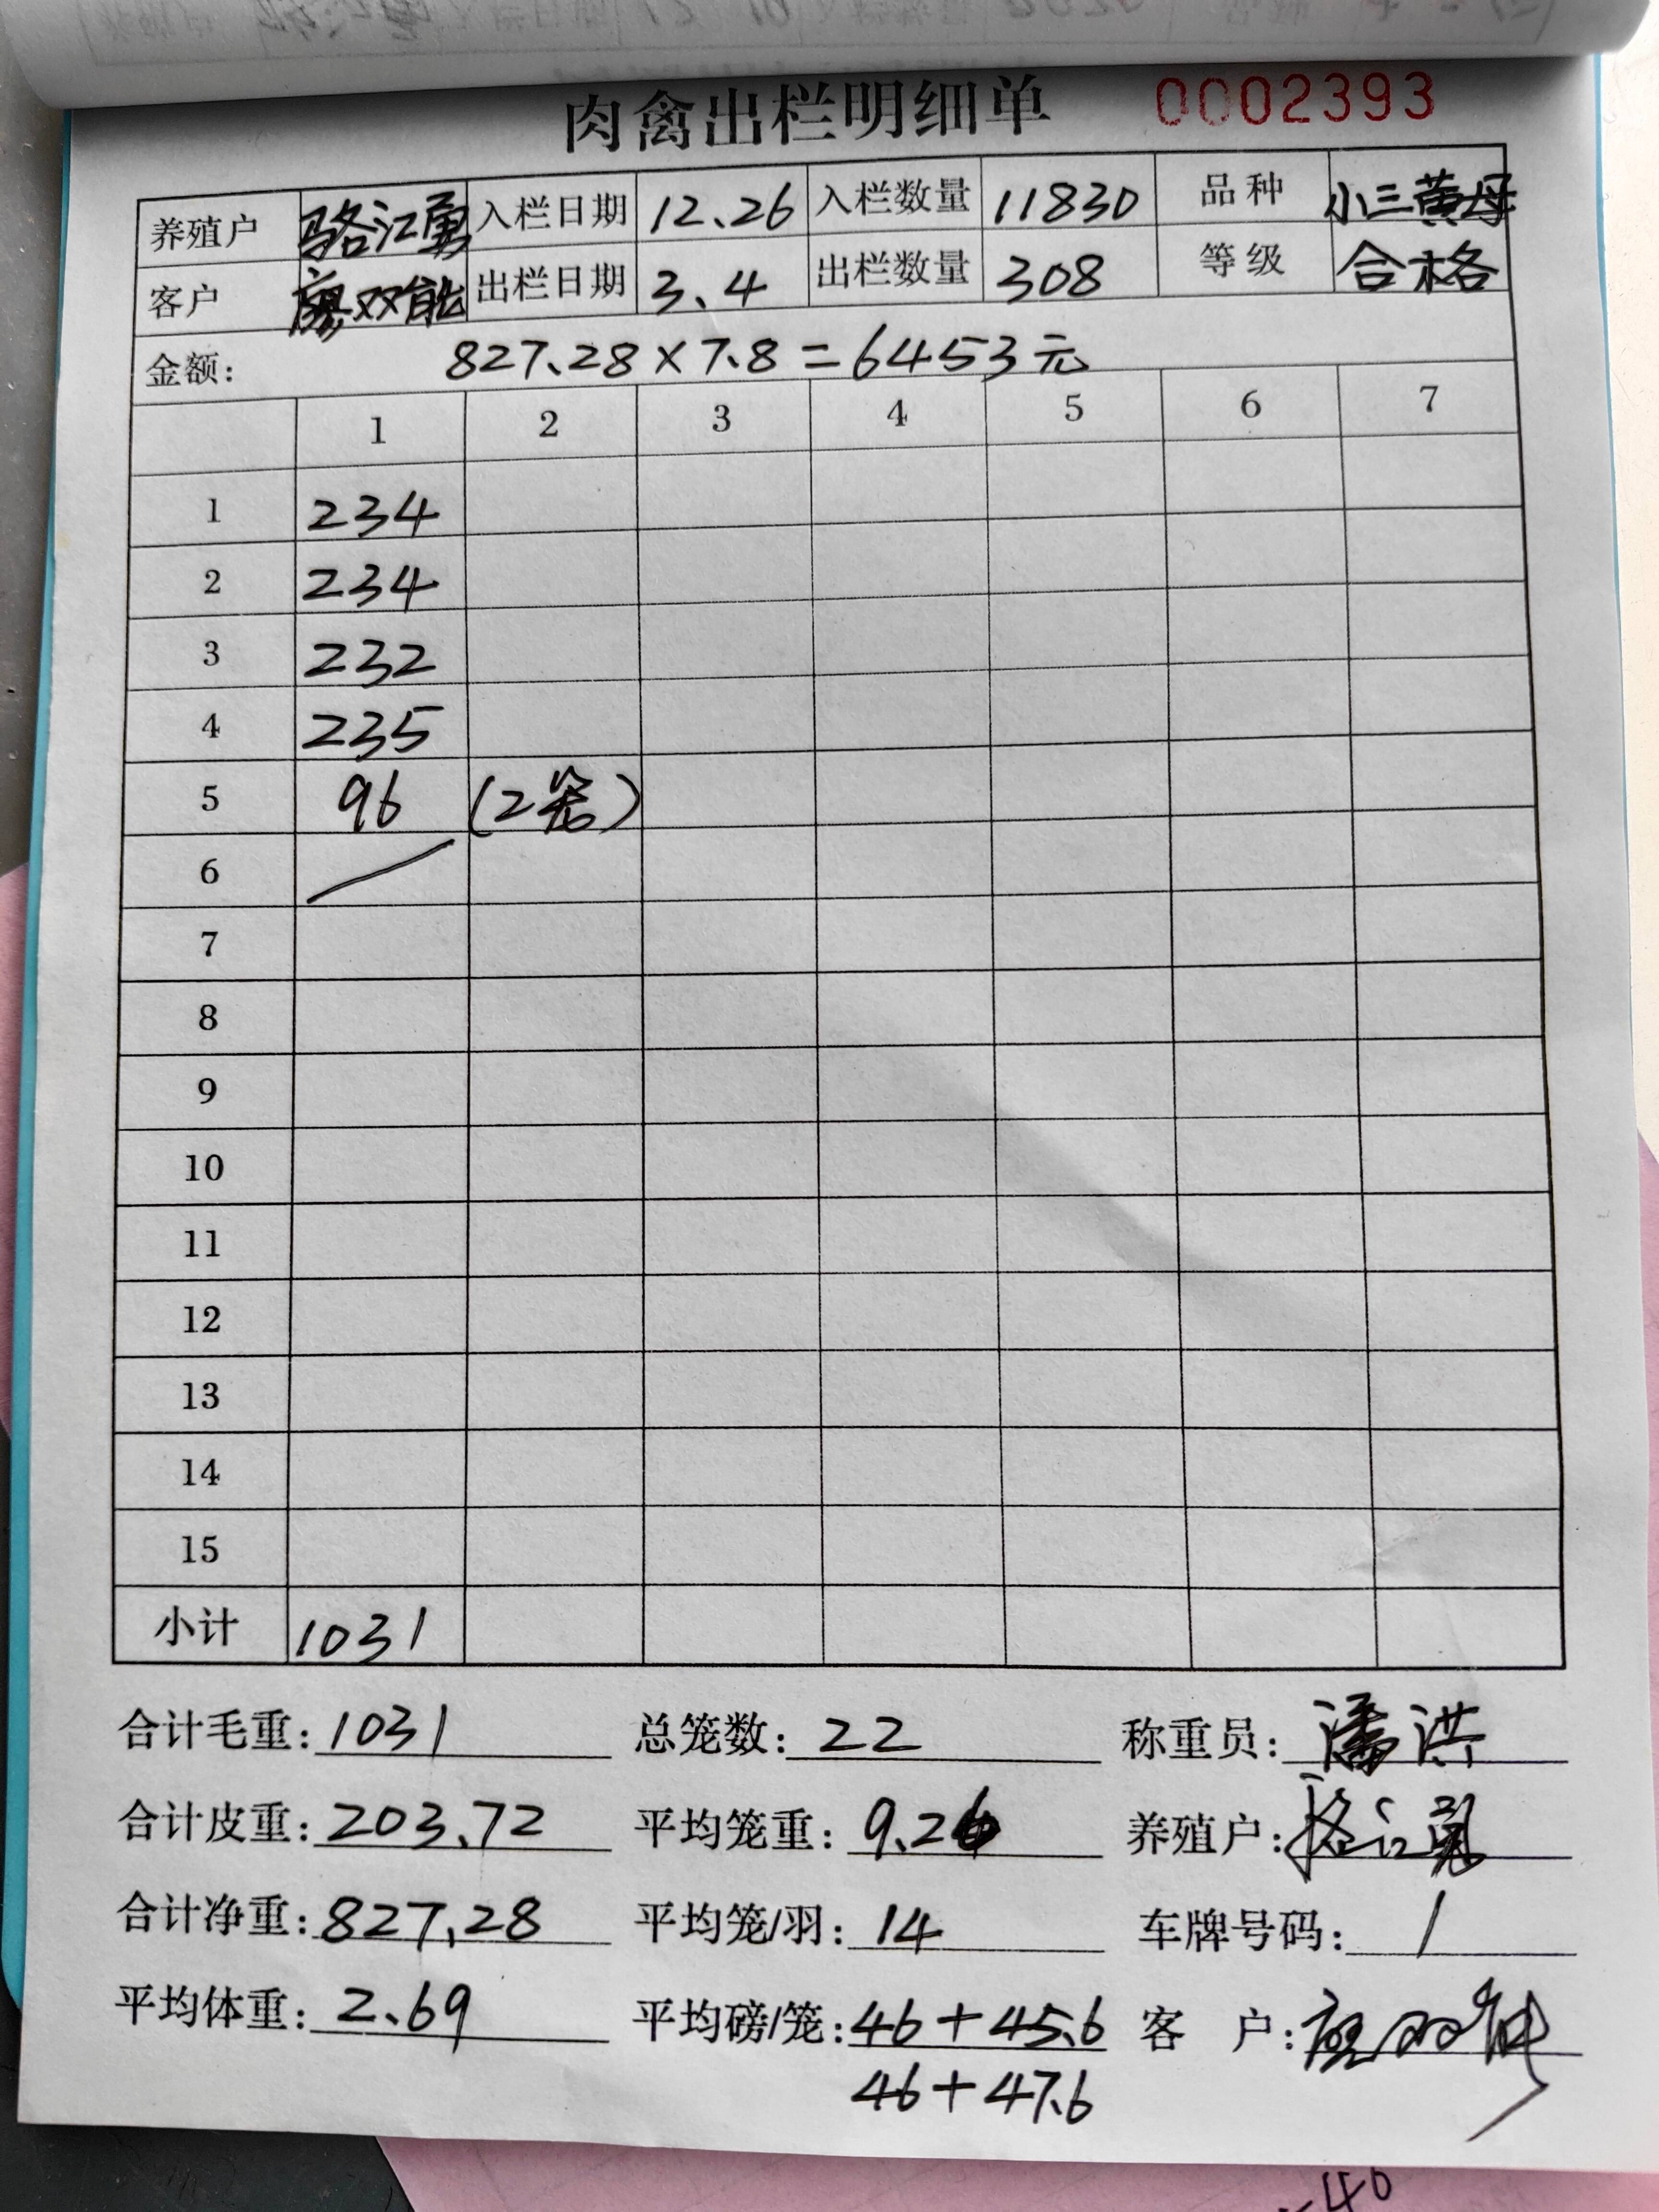 肉禽出栏明细单 0002393
养殖户 骆江勇 入栏日期 12.26 入栏数量 11830 品种 小三黄母
客户 廖双能 出栏日期 3.4 出栏数量 308 等级 合格
金额: 827.28×7.8=6453元
1 2 3 4 5 6 7
1 234
2 234
3 232
4 235
5 96 (2笼)
6
7
8
9
10
11
12
13
14
15
小计 1031
合计毛重: 1031 总笼数: 22 称重员: 潘洪
合计皮重: 203.72 平均笼重: 9.26 养殖户: 骆江勇
合计净重: 827.28 平均笼/羽: 14 车牌号码: /
平均体重: 2.69 平均磅/笼: 46+45.6 客 户: 廖双能
46+47.6